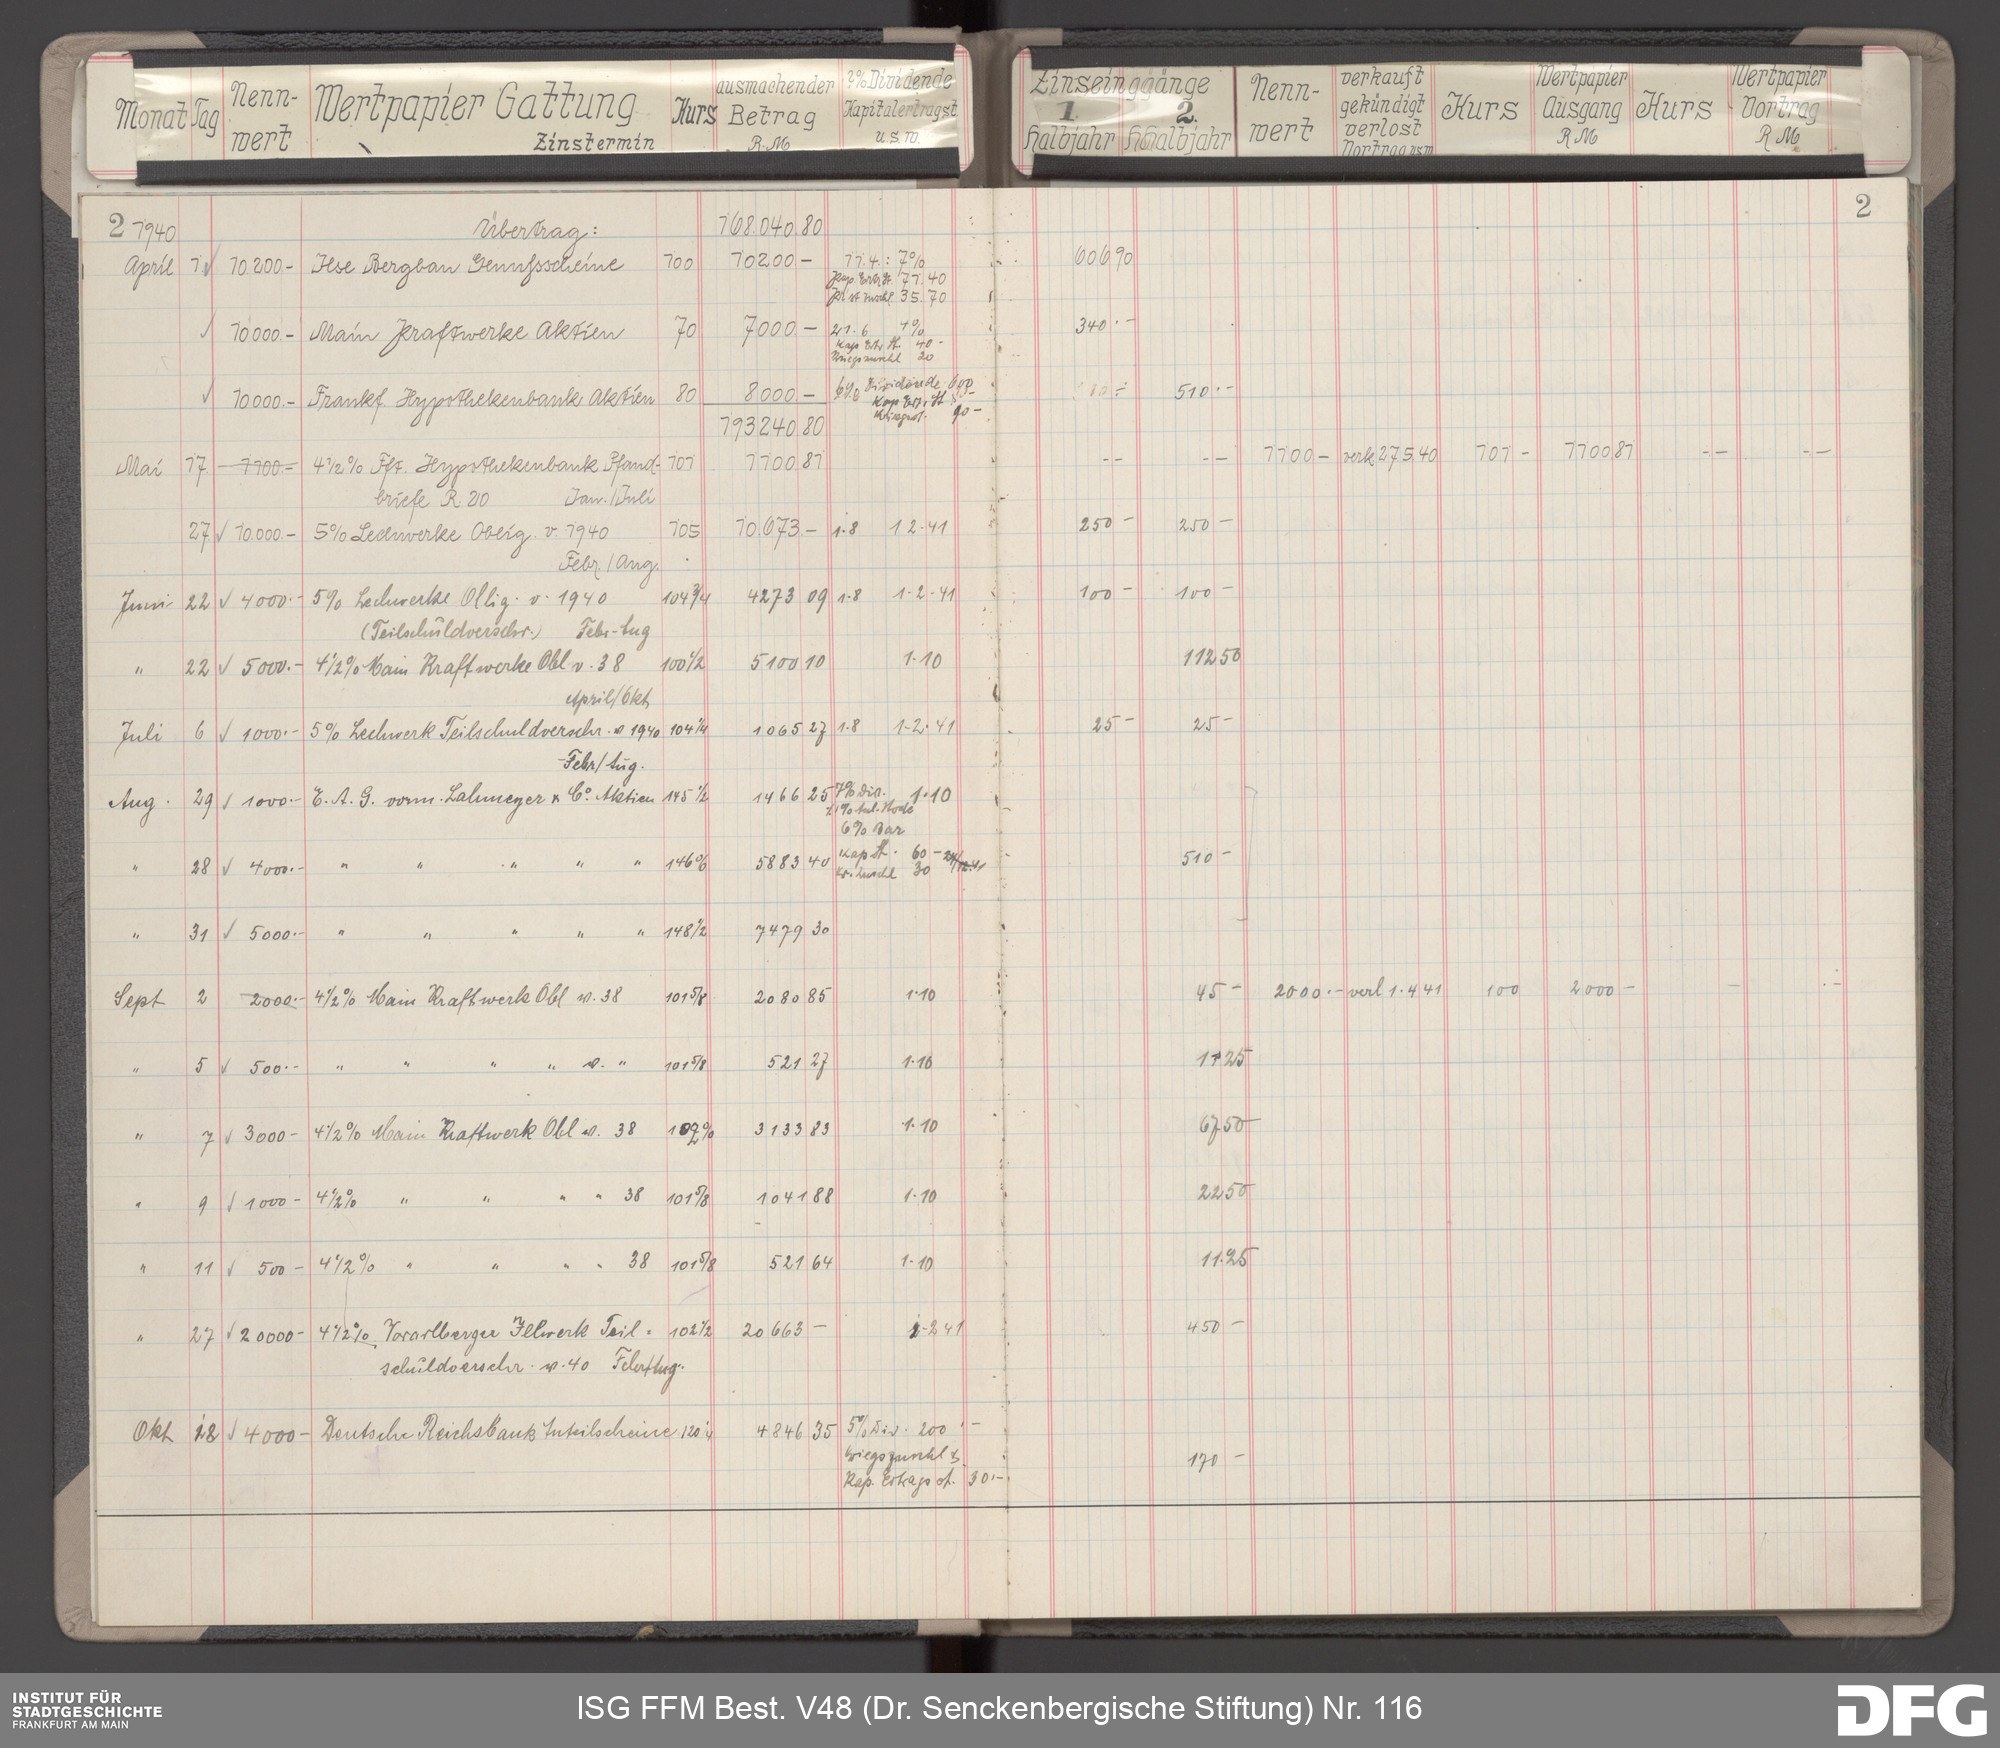 Monat Tag Nenn-wert Wertpapier Gattung Zinstermin Kurs ausmachender Betrag RM 2% Dividende Kapitalertragst u.s.w. Zinseingänge 1. Halbjahr 2. Halbjahr Nenn-wert verkauft gekündigt verlost Vortrag usw Kurs Wertpapier Ausgang RM Kurs Wertpapier Vortrag RM
2 1940 Übertrag: 168 040 80 2
April 1 10.200- Ilse Bergbau Genußscheine 100 10200 - 11.4.: 7% 606 90
Kap. Ertr. St. 71.40
35.70
10000.- Main Kraftwerke Aktien 70 7000 - 21.6 4% 340.-
Kap Ertr St. 40-
Kriegszuschl 20
10000.- Frankf. Hypothekenbank Aktien 80 8000 - 6% Dividende 600 510.-
Kap Ertr. St
90 -
193 240 80
Mai 17. 1100- 4½% Fft. Hypothekenbank Pfand- 101 1100 81 -- -- 1100 - verk 275.40 101 - 1100 81 -- --
briefe R. 20 Jan./Juli
27 10.000.- 5% Lechwerke Oblig. v. 1940 105 10.673.- 1.8 1 2.41 250 - 250 -
Febr./Aug.
Juni 22 4000.- 5% Lechwerke Oblig. v. 1940 104¾ 4273 09 1.8 1-2-41 100 - 100 -
(Teilschuldverschr.) Febr-Aug
" 22 5000.- 4½% Main Kraftwerke Obl v. 38 100½ 5100 10 1.10 112 50
April/Okt
Juli 6 1000.- 5% Lechwerk Teilschuldverschr. v 1940 104¼ 1065 27 1.8 1-2.41 25 - 25 -
Febr/Aug.
Aug. 29 1000.- E. A. G. vorm. Lahmeyer & Co. Aktien 145½ 1466 25 7% Div. 1.10
6% Bar
" 28 4000.- " " " " " 146% 5883 40 Kap St. 60 - 510 -
Kr. Zuschl 30
" 31 5000.- " " " " " 148½ 7479 30
Sept 2 2000.- 4½% Main Kraftwerk Obl v. 38 101⅝ 2080 85 1.10 45 - 2000.- verl 1.4 41 100 2000 - - --
" 5 500.- " " " " v. " 101⅝ 521 27 1.10 11 25
" 7 3000- 4½% Main Kraftwerk Obl v. 38 102% 3133 83 1.10 67 50
" 9 1000- 4½% " " " " 38 101⅝ 1041 88 1.10 22 50
" 11 500- 4½% " " " " 38 101⅝ 521 64 1.10 11.25
" 27 20000- 4½% Vorarlberger Illwerk Teil- 102½ 20 663 - 1-2 41 450 -
schuldverschr. v. 40 Febr/Aug.
Okt 28 4000- Deutsche Reichsbank Anteilscheine 120¼ 4846 35 5% Div. 200 .-
Kriegszuschl & 170 -
Kap. Ertrags st. 30.-
INSTITUT FÜR
STADTGESCHICHTE
FRANKFURT AM MAIN
ISG FFM Best. V48 (Dr. Senckenbergische Stiftung) Nr. 116
DFG